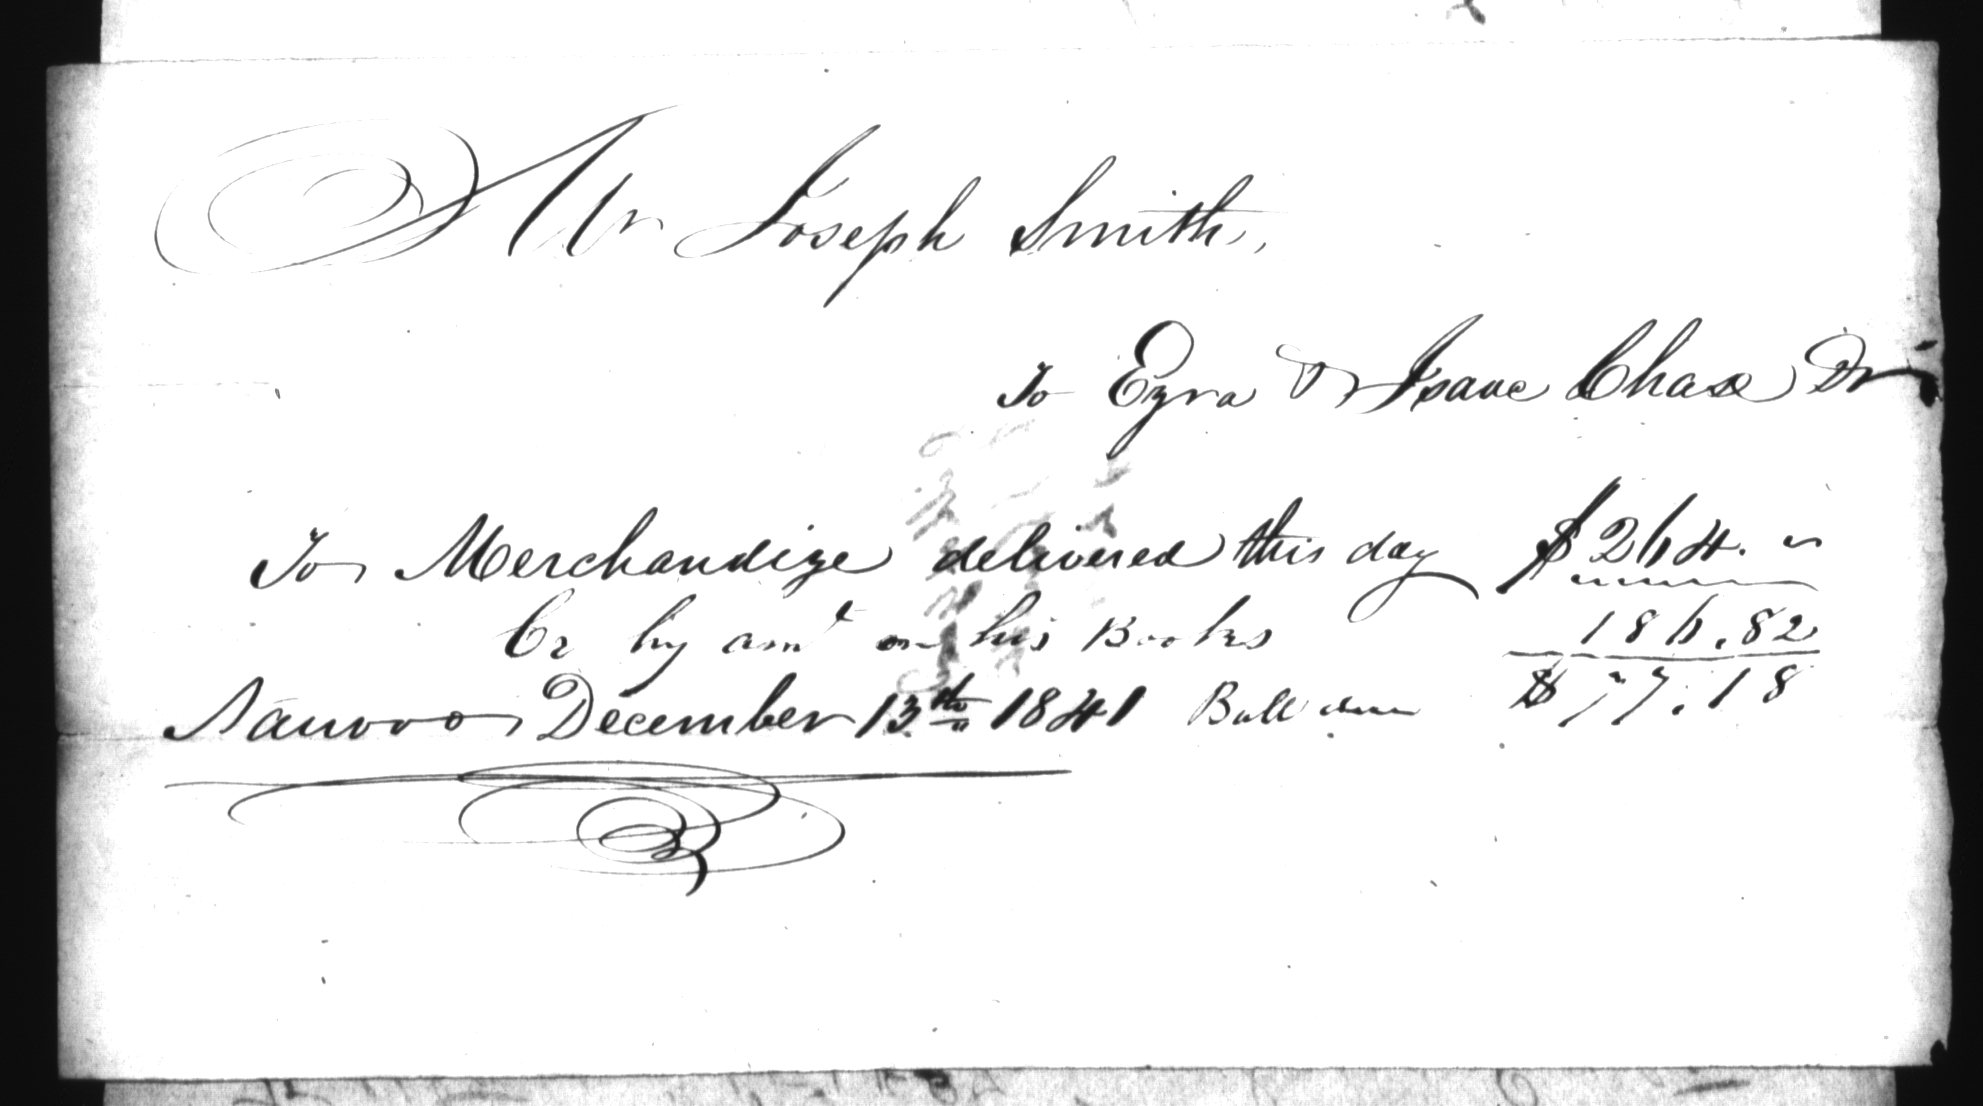 Mr Joseph Smith,
To Ezra & Isaac Chase Dr
To Merchandize delivered this day $264.
Cr by amt on his Books 186.82
Nauvoo December 13th 1841 Ball due $77.18